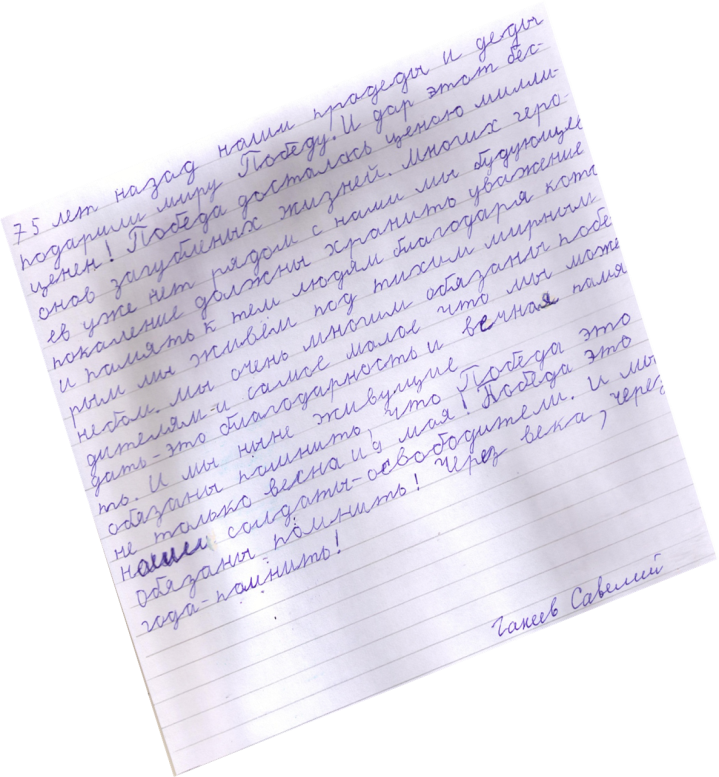 75 лет назад наши прадеды и деды
подарили миру Победу. И дар этот бес-
ценен! Победа досталась ценою милли-
онов загубленых жизней. Многих геро-
ев уже нет рядом с нами мы будующее
покаление должны хранить уважение
и память к тем людям благодаря кото
рым мы живём под тихим мирным
небом. Мы очень многим обязаны побе
дителям-и самое малое что мы може
дать-это благодарность и вечная памя
ть. И мы ныне живущие
обязаны помнить, что Победа это
не только весна и 9 мая! Победа это
наши солдаты-освободители. И мы
обязаны помнить! Через века, через
года-помнить!
Ганеев Савелий